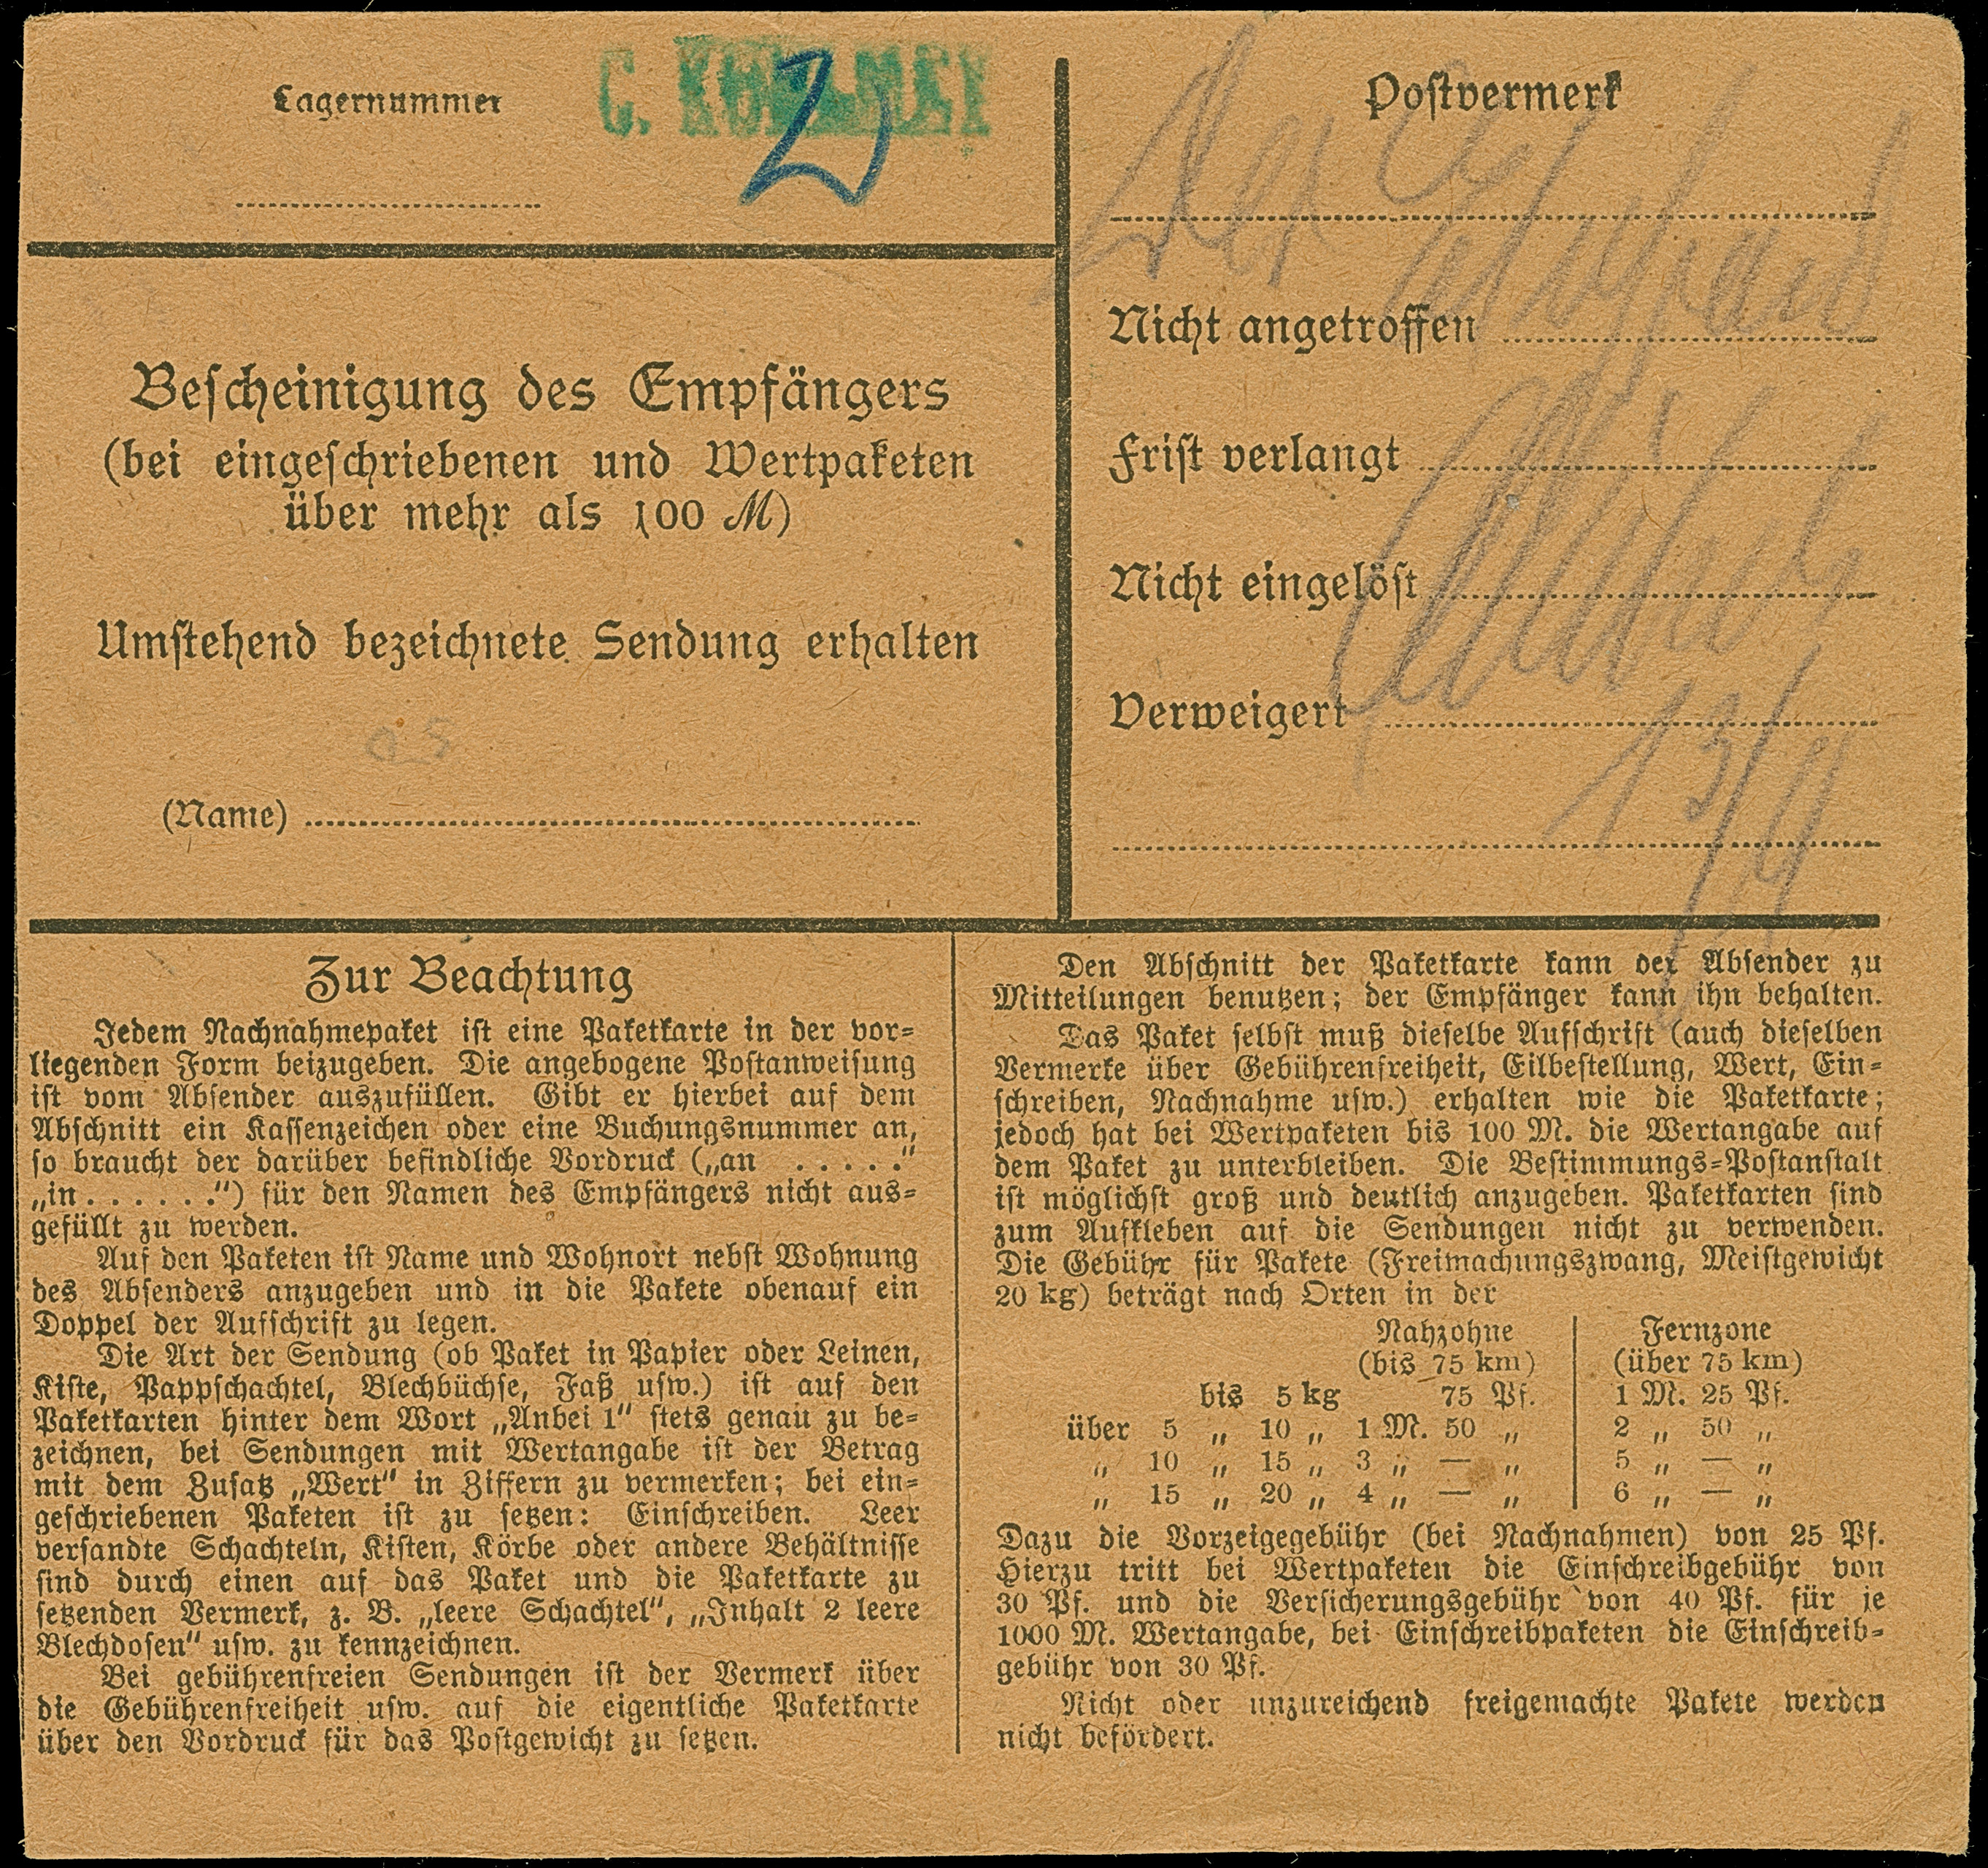 Lagernummer
C.
Bescheinigung des Empfängers
(bei eingeschriebenen und Wertpaketen
über mehr als 100 M)
Umstehend bezeichnete Sendung erhalten
(Name)
Postvermerk
Nicht angetroffen
Frist verlangt
Nicht eingelöst
Verweigert
Zur Beachtung
Jedem Nachnahmepaket ist eine Paketkarte in der vor-
liegenden Form beizugeben. Die angebogene Postanweisung
ist vom Absender auszufüllen. Gibt er hierbei auf dem
Abschnitt ein Kassenzeichen oder eine Buchungsnummer an,
so braucht der darüber befindliche Vordruck („an . . . . .“
„in . . . . . .“) für den Namen des Empfängers nicht aus-
gefüllt zu werden.
Auf den Paketen ist Name und Wohnort nebst Wohnung
des Absenders anzugeben und in die Pakete obenauf ein
Doppel der Aufschrift zu legen.
Die Art der Sendung (ob Paket in Papier oder Leinen,
Kiste, Pappschachtel, Blechbüchse, Faß usw.) ist auf den
Paketkarten hinter dem Wort „Anbei 1“ stets genau zu be-
zeichnen, bei Sendungen mit Wertangabe ist der Betrag
mit dem Zusatz „Wert“ in Ziffern zu vermerken; bei ein-
geschriebenen Paketen ist zu setzen: Einschreiben. Leer
versandte Schachteln, Kisten, Körbe oder andere Behältnisse
sind durch einen auf das Paket und die Paketkarte zu
setzenden Vermerk, z. B. „leere Schachtel“, „Inhalt 2 leere
Blechdosen“ usw. zu kennzeichnen.
Bei gebührenfreien Sendungen ist der Vermerk über
die Gebührenfreiheit usw. auf die eigentliche Paketkarte
über den Vordruck für das Postgewicht zu setzen.
Den Abschnitt der Paketkarte kann der Absender zu
Mitteilungen benutzen; der Empfänger kann ihn behalten.
Das Paket selbst muß dieselbe Aufschrift (auch dieselben
Vermerke über Gebührenfreiheit, Eilbestellung, Wert, Ein-
schreiben, Nachnahme usw.) erhalten wie die Paketkarte;
jedoch hat bei Wertpaketen bis 100 M. die Wertangabe auf
dem Paket zu unterbleiben. Die Bestimmungs-Postanstalt
ist möglichst groß und deutlich anzugeben. Paketkarten sind
zum Aufkleben auf die Sendungen nicht zu verwenden.
Die Gebühr für Pakete (Freimachungszwang, Meistgewicht
20 kg) beträgt nach Orten in der
Nahzohne Fernzone
(bis 75 km) (über 75 km)
bis 5 kg 75 Pf. 1 M. 25 Pf.
über 5 „ 10 „ 1 M. 50 „ 2 „ 50 „
„ 10 „ 15 „ 3 „ — „ 5 „ — „
„ 15 „ 20 „ 4 „ — „ 6 „ — „
Dazu die Vorzeigegebühr (bei Nachnahmen) von 25 Pf.
Hierzu tritt bei Wertpaketen die Einschreibgebühr von
30 Pf. und die Versicherungsgebühr von 40 Pf. für je
1000 M. Wertangabe, bei Einschreibpaketen die Einschreib-
gebühr von 30 Pf.
Nicht oder unzureichend freigemachte Pakete werden
nicht befördert.